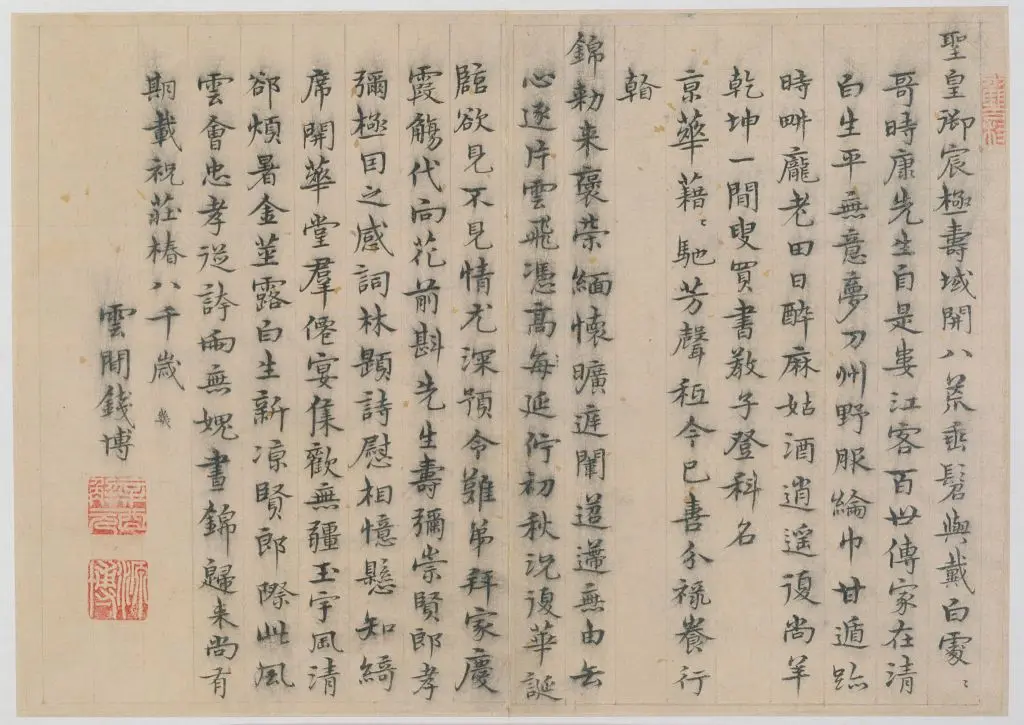 聖皇御宸極壽域開八荒垂髫與戴白處〻
哥時康先生自是婁江客百世傳家在清
白生平無意夢刀州野服綸巾甘遁跡
時畊龐老田日醉麻姑酒逍遙復尚羊
乾坤一閒叟買書教子登科名
京華藉〻馳芳聲秖今已喜分祿養行
錦勅来褒榮緬懷曠闊迢遰無由去
心逐片雲飛憑高每延佇初秋況復華誕
臨欲見不見情尤深預令難弟拜家慶
霞觴代向花前斟先生壽彌崇賢郎孝
彌極囙之感詞林題詩慰相憶懸知綺
席開華堂羣僊宴集歡無疆玉宇風清
郤煩暑金莖露白生新凉賢郎際此風
雲會忠孝從誇兩無媿晝錦歸来尚有
期載祝莊椿八千歲
雲間錢博